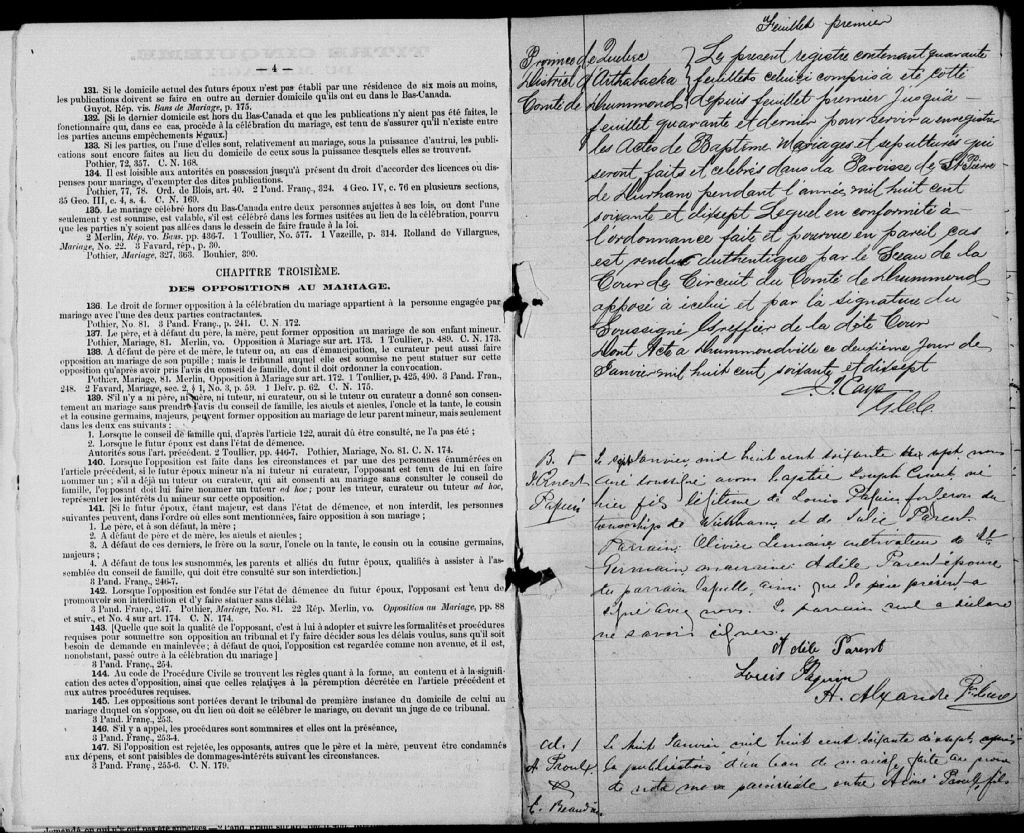 — 4 —
131. Si le domicile actuel des futurs époux n'est pas établi par une résidence de six mois au moins,
les publications doivent se faire en outre au dernier domicile qu'ils ont eu dans le Bas-Canada.
Guyot, Rép. vis. Bans de Mariage, p. 175.
132. [Si le dernier domicile est hors du Bas-Canada et que les publications n'y aient pas été faites, le
fonctionnaire qui, dans ce cas, procède à la célébration du mariage, est tenu de s'assurer qu'il n'existe entre
les parties aucuns empêchements légaux.]
133. Si les parties, ou l'une d'elles, sont, relativement au mariage, sous la puissance d'autrui, les publications
sont encore faites au lieu du domicile de ceux sous la puissance desquels elles se trouvent.
Pothier, 72, 357. C. N. 168.
134. Il est loisible aux autorités en possession jusqu'à présent du droit d'accorder des licences ou dispenses
pour mariage, d'exempter des dites publications.
Pothier, 77, 78. Ord. de Blois, art. 40. 2 Pand. Franç., 324. 4 Geo. IV, c. 76 en plusieurs sections,
35 Geo. III, c. 4, s. 4. C. N. 169.
135. Le mariage célébré hors du Bas-Canada entre deux personnes sujettes à ses lois, ou dont l'une
seulement y est soumise, est valable, s'il est célébré dans les formes usitées au lieu de la célébration, pourvu
que les parties n'y soient pas allées dans le dessein de faire fraude à la loi.
2 Merlin, Rép. vo. Bans. pp. 436-7. 1 Toullier, No. 577. 1 Vazeille, p. 314. Rolland de Villargues,
Mariage, No. 22. 3 Favard, rép., p. 30.
Pothier, Mariage, 327, 363. Bouhier, 390.
CHAPITRE TROISIÈME.
DES OPPOSITIONS AU MARIAGE.
136. Le droit de former opposition à la célébration du mariage appartient à la personne engagée par
mariage avec l'une des deux parties contractantes.
Pothier, No. 81. 3 Pand. Franç., p. 241. C. N. 172.
137. Le père, et à défaut du père, la mère, peut former opposition au mariage de son enfant mineur.
Pothier, Mariage, 81. Merlin, vo. Opposition à Mariage sur art. 173. 1 Toullier, p. 489. C. N. 173.
138. A défaut de père et de mère, le tuteur ou, au cas d'émancipation, le curateur peut aussi faire
opposition au mariage de son pupille ; mais le tribunal auquel elle est soumise ne peut statuer sur cette
opposition qu'après avoir pris l'avis du conseil de famille, dont il doit ordonner la convocation.
Pothier, Mariage, 81. Merlin, Opposition à Mariage sur art. 172. 1 Toullier, p. 425, 490. 3 Pand. Fran.,
248. 2 Favard, Mariage, sec. 2, § 1, No. 3, p. 59. 1 Delv. p. 62. C. N. 175.
139. S'il n'y a ni père, ni mère, ni tuteur, ni curateur, ou si le tuteur ou curateur a donné son consentement
au mariage sans prendre l'avis du conseil de famille, les aïeuls et aïeules, l'oncle et la tante, le cousin
et la cousine germains, majeurs, peuvent former opposition au mariage de leur parent mineur, mais seulement
dans les deux cas suivants :
1. Lorsque le conseil de famille qui, d'après l'article 122, aurait dû être consulté, ne l'a pas été ;
2. Lorsque le futur époux est dans l'état de démence.
Autorités sous l'art. précédent. 2 Toullier, pp. 446-7. Pothier, Mariage, No. 81. C. N. 174.
140. Lorsque l'opposition est faite dans les circonstances et par une des personnes énumérées en
l'article précédent, si le futur époux mineur n'a ni tuteur ni curateur, l'opposant est tenu de lui en faire
nommer un ; s'il a déjà un tuteur ou curateur, qui ait consenti au mariage sans consulter le conseil de
famille, l'opposant doit lui faire nommer un tuteur ad hoc ; pour les tuteur, curateur ou tuteur ad hoc,
représenter les intérêts du mineur sur cette opposition.
141. [Si le futur époux, étant majeur, est dans l'état de démence, et non interdit, les personnes
suivantes peuvent, dans l'ordre où elles sont mentionnées, faire opposition à son mariage ;
1. Le père, et à son défaut, la mère ;
2. A défaut de père et de mère, les aïeuls et aïeules ;
3. A défaut de ces derniers, le frère ou la sœur, l'oncle ou la tante, le cousin ou la cousine germains,
majeurs ;
4. A défaut de tous les susnommés, les parents et alliés du futur époux, qualifiés à assister à l'assemblée
du conseil de famille, qui doit être consulté sur son interdiction.]
3 Pand. Franç., 246-7.
142. Lorsque l'opposition est fondée sur l'état de démence du futur époux, l'opposant est tenu de
promouvoir son interdiction et d'y faire statuer sans délai.
3 Pand. Franç., 247. Pothier, Mariage, No. 81. 22 Rép. Merlin, vo. Opposition au Mariage, pp. 88
et suiv., et No. 4 sur art. 174. C. N. 174.
143. [Quelle que soit la qualité de l'opposant, c'est à lui à adopter et suivre les formalités et procédures
requises pour soumettre son opposition au tribunal et l'y faire décider sous les délais voulus, sans qu'il soit
besoin de demande en mainlevée ; à défaut de quoi, l'opposition est regardée comme non avenue, et il est,
nonobstant, passé outre à la célébration du mariage]
3 Pand. Franç., 254.
144. Au code de Procédure Civile se trouvent les règles quant à la forme, au contenu et à la signification
des actes d'opposition, ainsi que celles relatives à la péremption décrétée en l'article précédent et
aux autres procédures requises.
145. Les oppositions sont portées devant le tribunal de première instance du domicile de celui au
mariage duquel on s'oppose, ou du lieu où doit se célébrer le mariage, ou devant un juge de ce tribunal.
3 Pand. Franç., 253.
146. S'il y a appel, les procédures sont sommaires et elles ont la préséance,
3 Pand. Franç., 253-4.
147. Si l'opposition est rejetée, les opposants, autres que le père et la mère, peuvent être condamnés
aux dépens, et sont paisibles de dommages-intérêts suivant les circonstances.
3 Pand. Franç., 255-6. C. N. 179.
Feuillet premier
Province de Québec
District d'Arthabaska
Comté de Drummond
Le présent registre contenant quarante
feuillets celuici compris a été coté
depuis feuillet premier jusqu'à
feuillet quarante et dernier pour servir a enregistrer
les Actes de Baptême Mariages et sépultures qui
seront faits et célébrés dans la Paroisse de St Pierre
de Durham pendant l'année mil huit cent
soixante et dixsept Lequel en conformité à
l'ordonnance faite et pourvue en pareil cas
est rendu authentique par le Sceau de la
Cour de Circuit du Comté de Drummond
apposé à icelui et par la signature du
Soussigné Greffier de la dite Cour
Dont Acte a Drummondville ce deuxième Jour de
Janvier mil huit cent, soixante et dixsept
B. 1
J. Ernest
Paquin
Le sept Janvier mil huit cent soixante dix sept nous
curé soussigné avons baptisé Joseph Ernest né
hier fils légitime de Louis Paquin forgeron du
township de Wickham et de Julie Parent.
Parrain Olivier Lemaire cultivateur de St
Germain marraine Adèle Parent épouse
du parrain laquelle ainsi que le père présent a
signé avec nous. Le parrain seul a déclaré
ne savoir signer
Adèle Parent
Louis Paquin
H. Alexandre Ptre Curé
M. 1
A. Proulx
&
E. Beaudin
Le huit Janvier mil huit cent soixante dixsept, après
la publication d'un ban de mariage faite au prône
de notre messe paroissiale entre Aimé Proulx fils